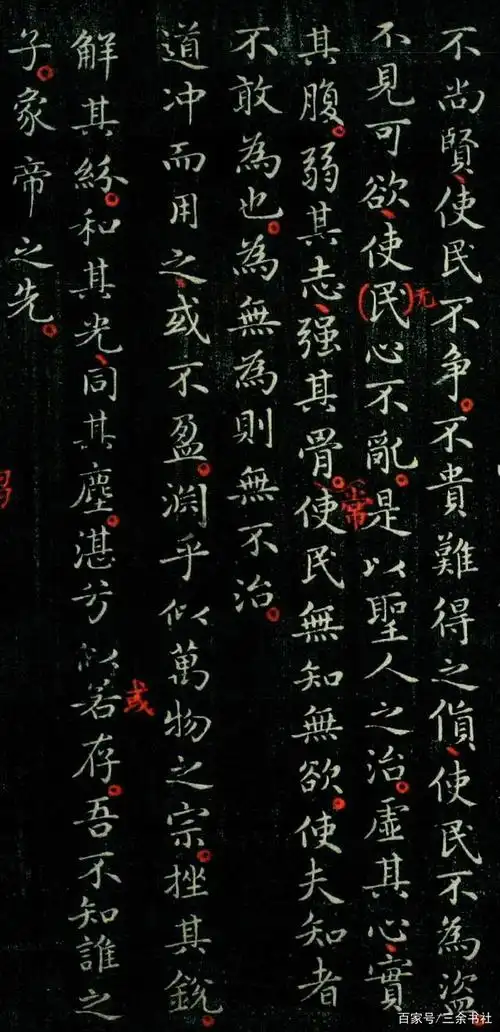 不尚賢、使民不争。不貴難得之貨、使民不為盜
不見可欲、使(民)心不亂。是以聖人之治。虛其心、實
无
其腹。弱其志、强其骨。使民無知無欲。使夫知者
常
不敢為也。為無為則無不治。
道冲而用之、或不盈。渊乎似萬物之宗。挫其銳。
解其紛。和其光、同其塵。湛兮似若存。吾不知誰之
或
子。象帝之先。
百家号/三余书社